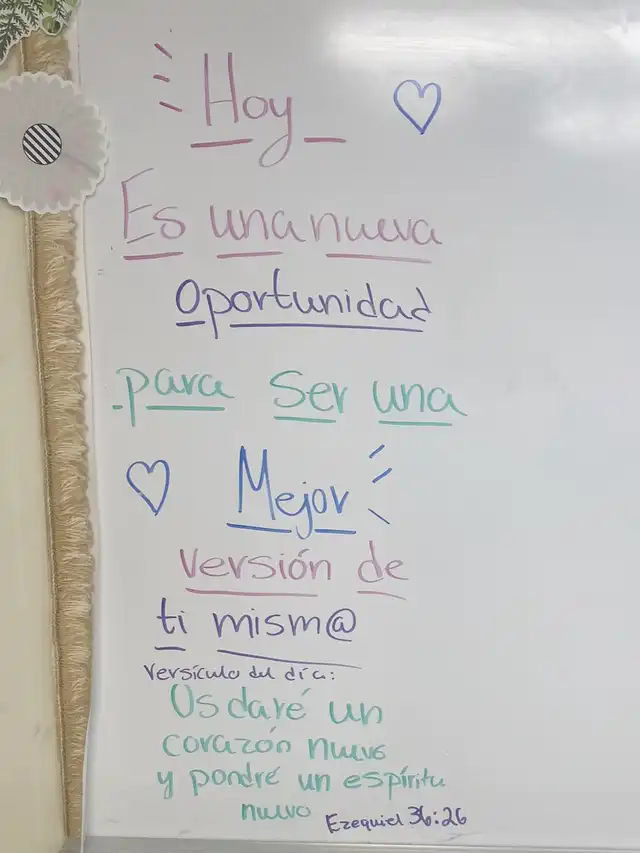 Hoy
Es una nueva
Oportunidad
para Ser una
Mejor
versión de
ti mism@
Versículo del día:
Os daré un
corazón nuevo
y pondré un espíritu
nuevo Ezequiel 36:26